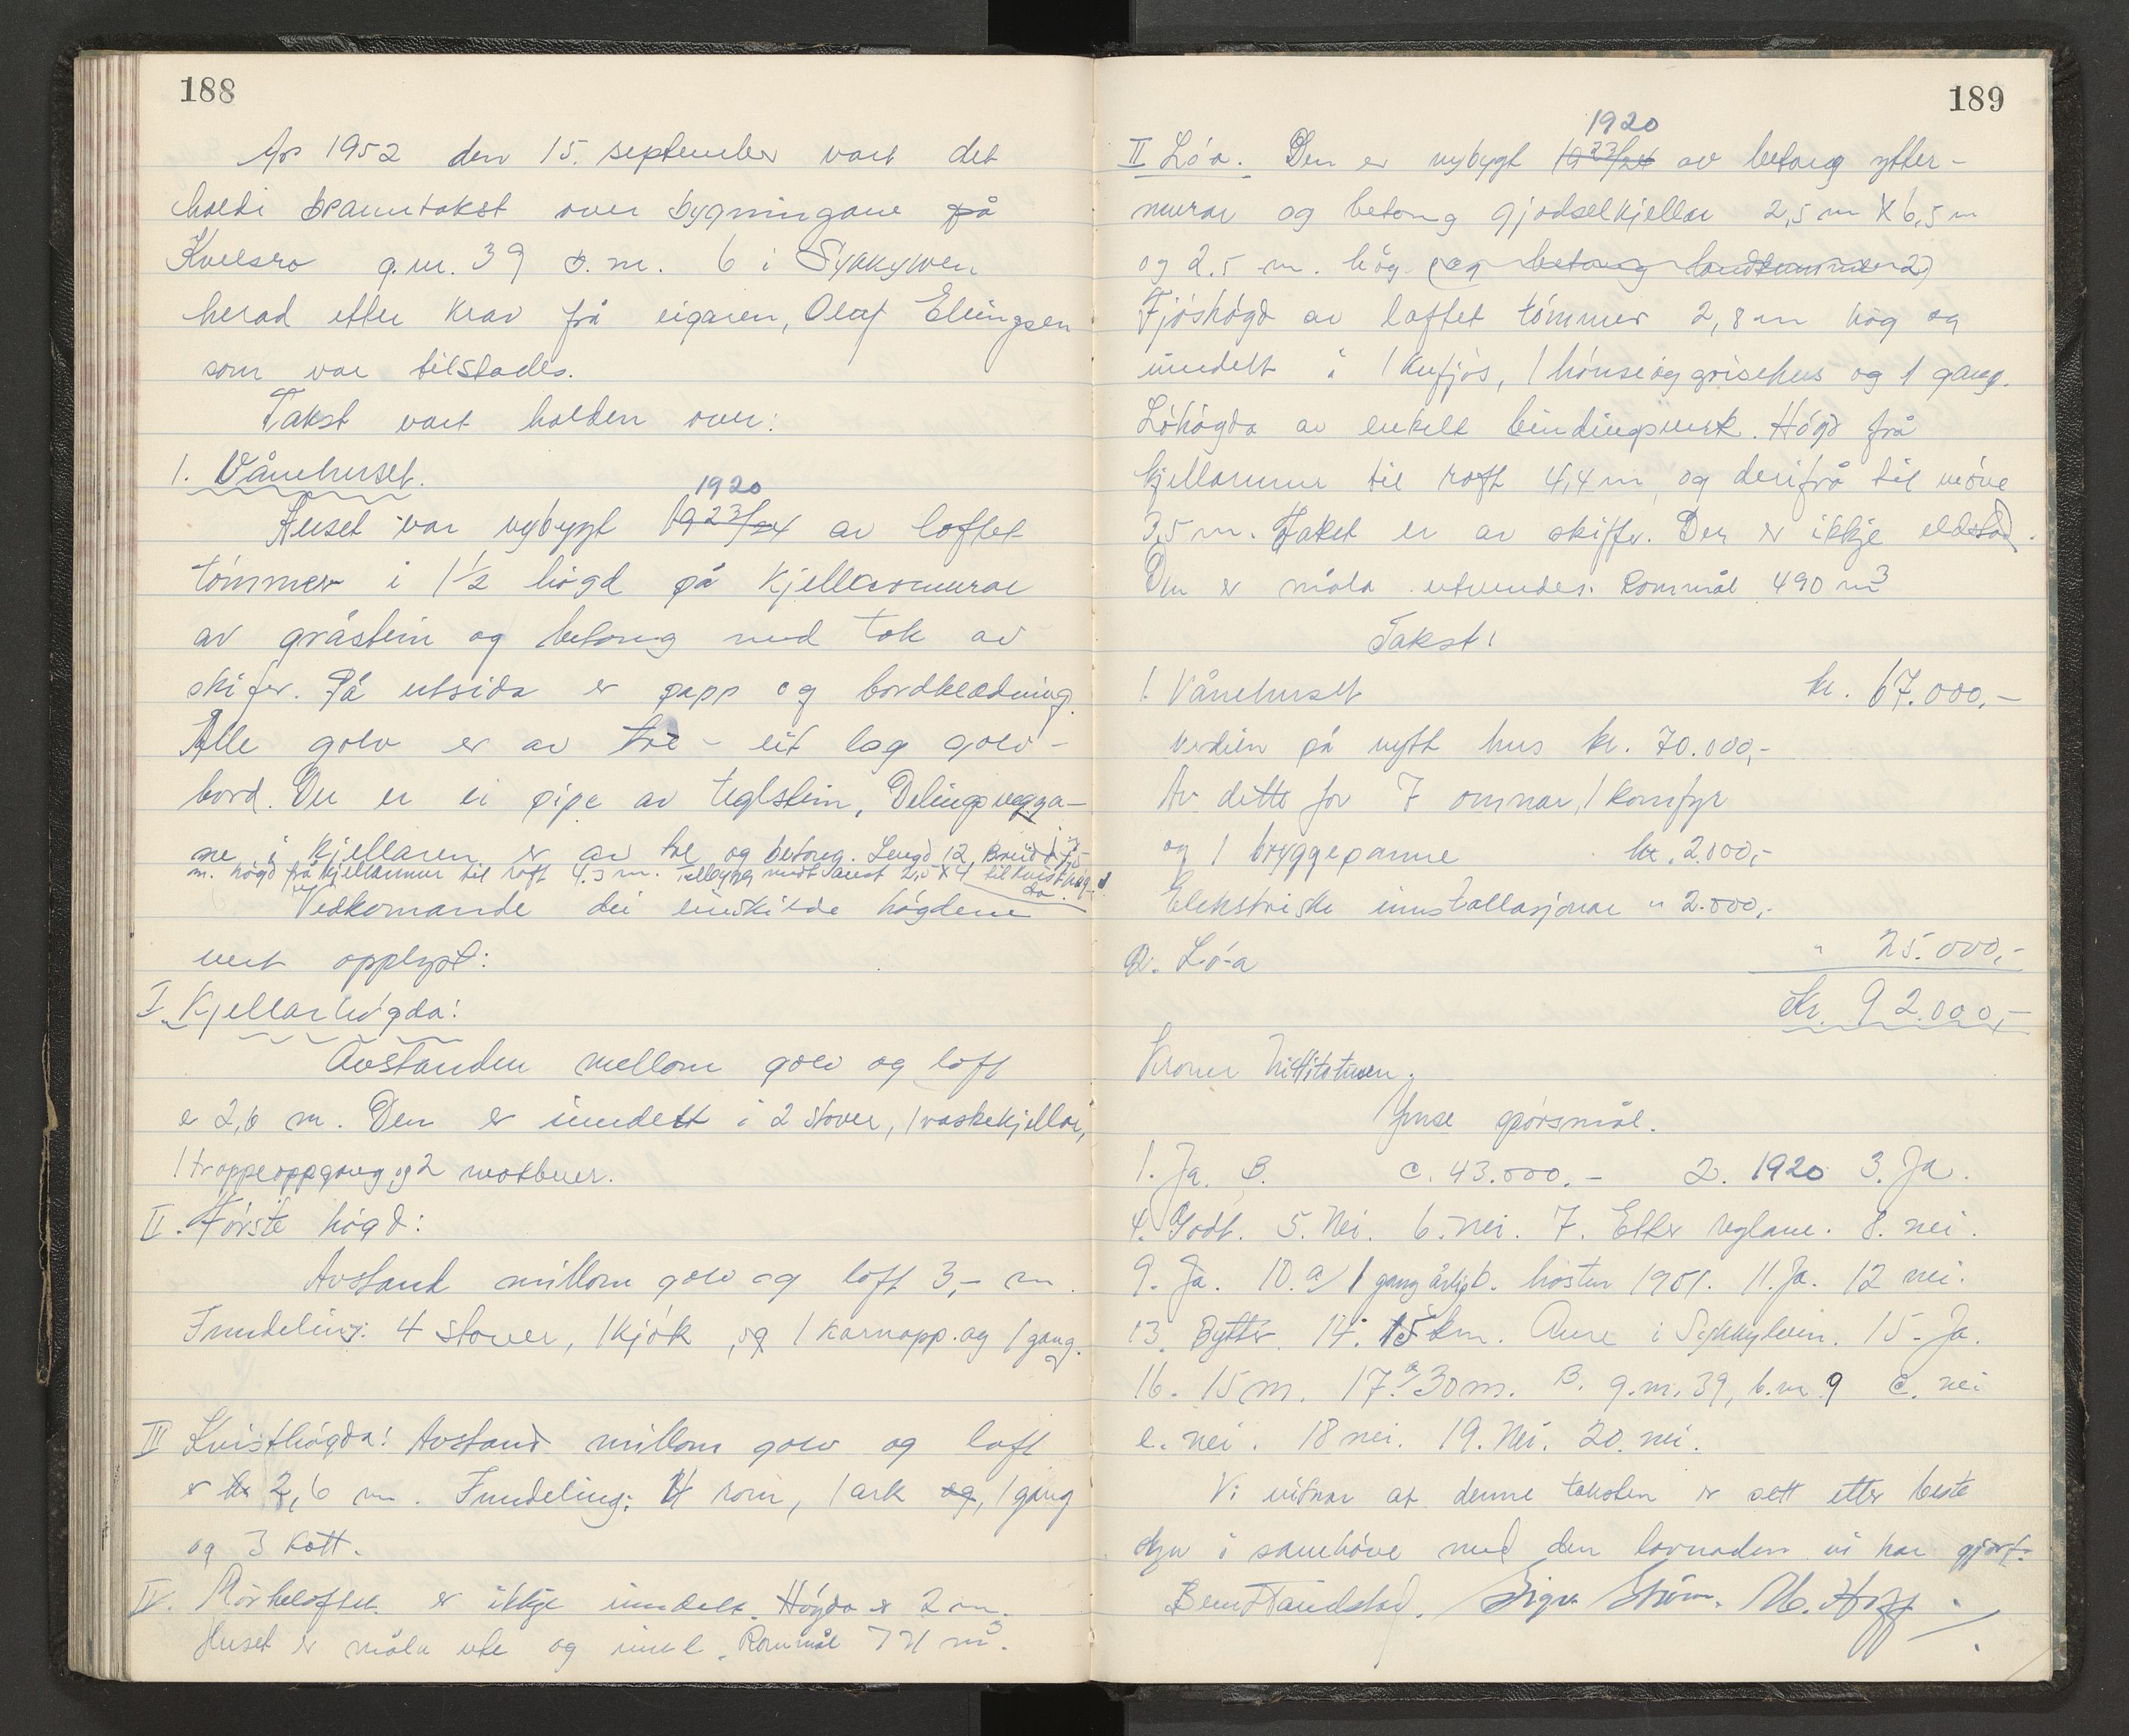 188
År 1952 den 15. september vart det
haldi branntakst over bygningane på
Kvilsro g.nr. 39 b.nr. 6 i Sykkylven
herad etter krav frå eigaren, Olaf Elvingsen
som var tilstades.
Takst vart halden over:
1. Vånehuset.
1920
Huset var nybygt 1923/24 av loftet
tómmer i 1½ högd på kjellaromurar
av gråstein og betong med tak av
skifer. På utsida er papp og bordklædning.
Alle golv er av tre - eit lag golv-
bord. Der er ei pipe av teglstein, Delingsvegga-
ne i kjellaren er av tre og betong. Lengd 12, Breidd 7,5
m. högd frå kjellarmur til röft 4.3 m. Tilbygg mot aust 2,5 x 4 til kvisthög-
da.
Vedkomande dei einskilde högdene
vert opplyst:
I Kjellarhögda:
Avstanden mellom golv og loft
e 2,6 m. Den er inndelt i 2 stover, 1 vaskekjellar,
1 trappeoppgang og 2 matbuer.
II. Förste högd:
Avstand millom golv og loft 3,- m.
Inndeling: 4 stover, 1 kjök, og 1 karnapp. og 1 gang.
III Kvisthögda: Avstand millom golv og loft
er 2,6 m. Inndeling: 4 rom, 1 ark og, 1 gang
og 3 kott.
IV. Mörkeloftet er ikkje inndelt. Högda er 2 m.
Huset er måla ute og inne. Rommål 771 m³.
189
1920
II Lóa. Den er nybygt 1923/24 av betong ytter-
murar og betong gjødselkjellar 2,5 m X 6,5 m
og 2.5 m. hög (og betong landkummer 2)
Fjóshögd av loftet tómmer 2,8 m hög og
inndelt i 1 kufjós, 1 hónse og grisehus og 1 gang.
Lóhögda av enkelt bindingsverk. Högd frå
kjellarmur til roft 4,4 m, og derifrå til móne
3,5 m. Taket er av skifer. Der er ikkje eldstad.
Den er måla utvendes. Rommål 490 m³
Takst:
1. Vånehuset kr. 67.000,-
Verdien på nytt hus kr. 70.000,-
Av dette for 7 omnar, 1 komfyr
og 1 bryggepanne kr. 2.000,-
Elektriske innstallasjonar " 2.000,-
2. Ló-a " 25.000,-
Kr. 92.000,-
Kroner Nittitotusen.
Ymse spórsmål.
1. Ja. B. c. 43.000.- 2. 1920 3. Ja.
4. Godt. 5. Nei. 6. nei. 7. Etter reglane. 8. nei.
9. Ja. 10. a/ 1 gang årlig b. hösten 1951. 11. Ja. 12 nei.
13. Bytter. 14. 15 km. Aure i Sykkylven. 15. Ja.
16. 15 m. 17. a/ 30 m. B. g.nr. 39, b.nr. 9 c. nei
e. nei. 18 nei. 19. Nei. 20. nei.
Vi vitnar at denne taksten er sett etter beste
skjøn i samhöve med den lovnaden vi har gjort.
Bernt Tandstad. Sigv. Ström. M. Hoff.